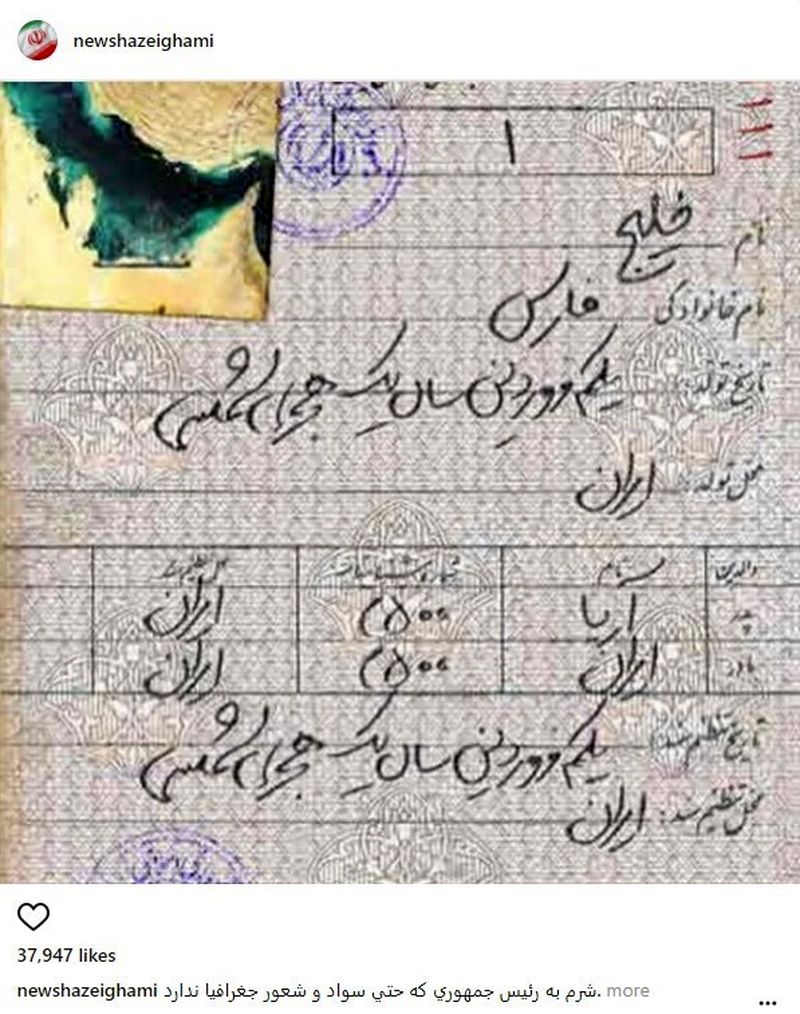 newshazeighami
۱
نام خلیج
نام خانوادگی فارس
تاریخ تولد: یکم فروردین سال یک هجری شمسی
محل تولد: ایران
والدین نام شماره شناسنامه
پدر آریا ۲۵۰۰ ایران
مادر ایران ۲۵۰۰ ایران
تاریخ تنظیم سند: یکم فروردین سال یک هجری شمسی
محل تنظیم سند: ایران
37,947 likes
newshazeighami شرم به رئيس جمهوري كه حتي سواد و شعور جغرافيا ندارد. more